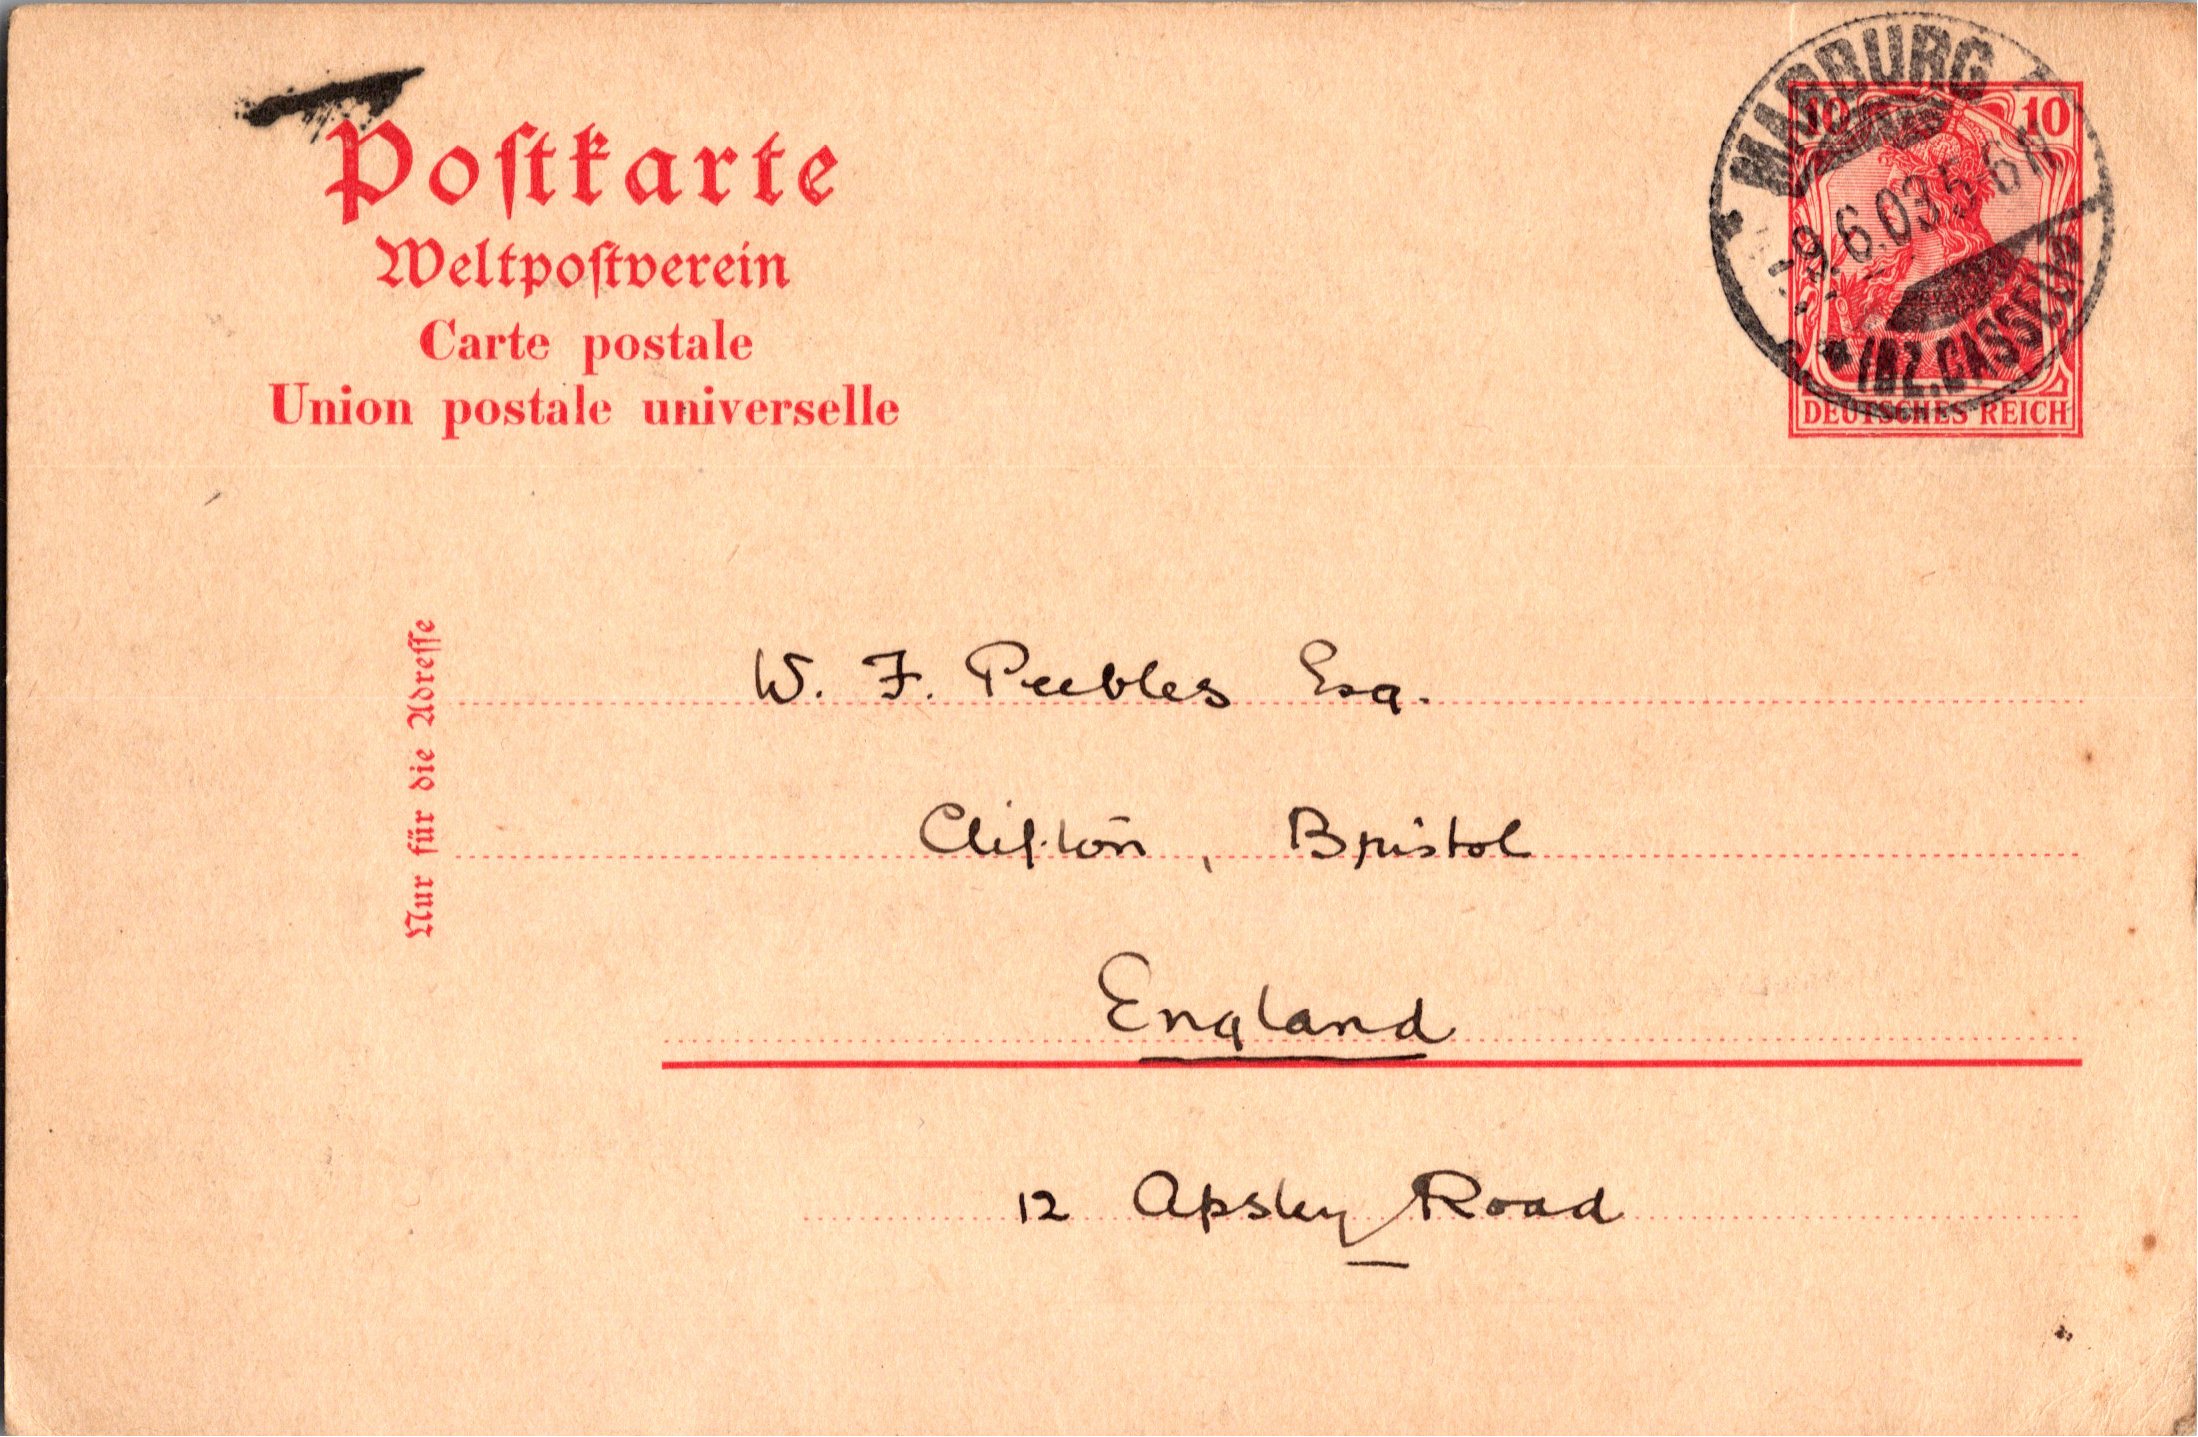 Poſtkarte
Weltpoſtverein
Carte postale
Union postale universelle
MARBURG
10 10
9.6.03.5-6N
(BZ.CASSEL)
DEUTSCHES REICH
Nur für die Adreſſe
W. F. Peebles Esq.
Clifton, Bristol
England
12 Apsley Road